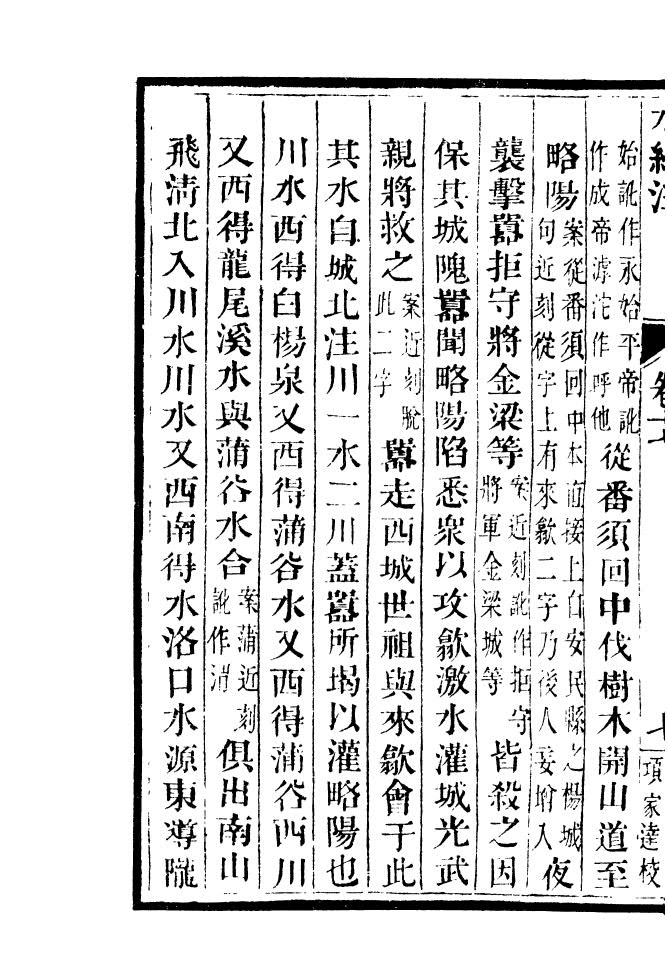 水經注 卷十七 十 項家達校
始訛作永始平帝訛
作成帝滹沱作呼他
從番須回中伐樹木開山道至
略陽
案從番須回中本直接上自安民縣之楊城
句近刻從字上有來歙二字乃後人妄增入
夜
襲擊囂拒守將金梁等
案近刻訛作拒守
將軍金梁城等
皆殺之因
保其城隗囂聞略陽陷悉衆以攻歙激水灌城光武
親將救之
案近刻脫
此二字
囂走西城世祖與來歙會于此
其水自城北注川一水二川蓋囂所堨以灌略陽也
川水西得白楊泉又西得蒲谷水又西得蒲谷西川
又西得龍尾溪水與蒲谷水合
案蒲近刻
訛作清
俱出南山
飛清北入川水川水又西南得水洛口水源東導隴